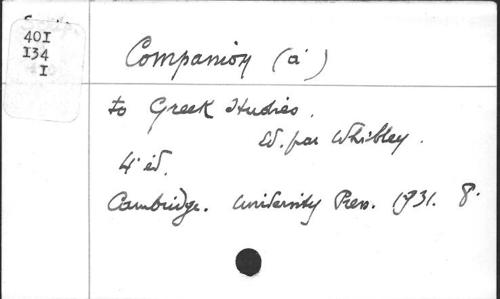 401
134
1
Companion (a)
to Greek Studies.
Ed. par Whibley.
4° éd.
Cambridge. University Press. 1931. 8°.